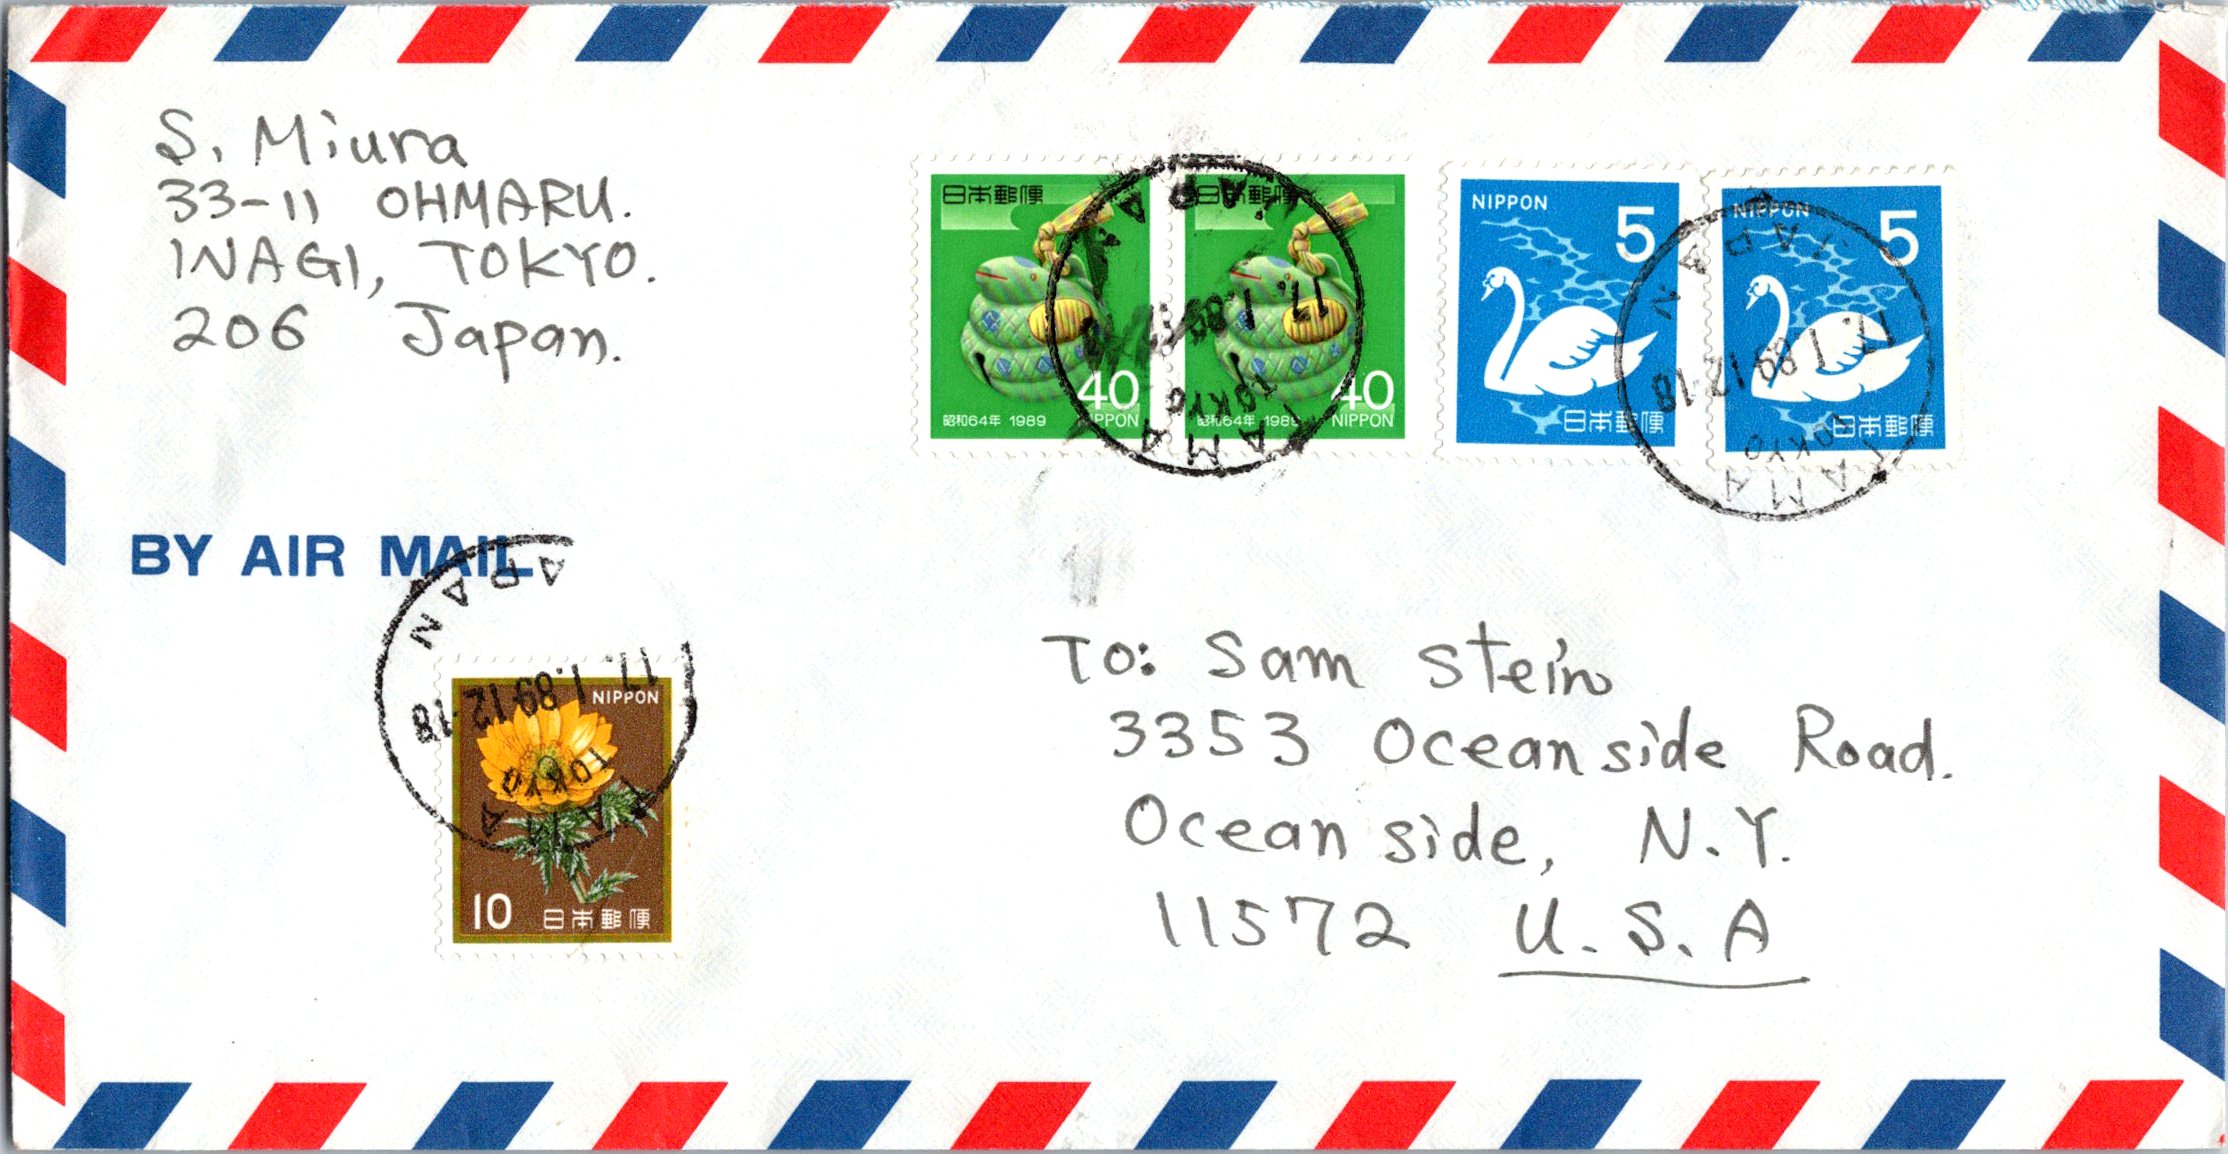 S. Miura
33-11 OHMARU.
INAGI, TOKYO.
206 Japan.
日本郵便
40
昭和64年 1989 NIPPON
日本郵便
40
昭和64年 1989 NIPPON
JAPAN
17. 1. 89
TAMA
TOKYO
NIPPON 5
日本郵便
NIPPON 5
日本郵便
JAPAN
17. 1 89 12-18
TOKYO
TAMA
BY AIR MAIL
APAN
17. 1. 89 12-18
TOKYO
TAMA
NIPPON
10 日本郵便
To: Sam Stein
3353 Oceanside Road.
Oceanside, N.Y.
11572 U.S.A